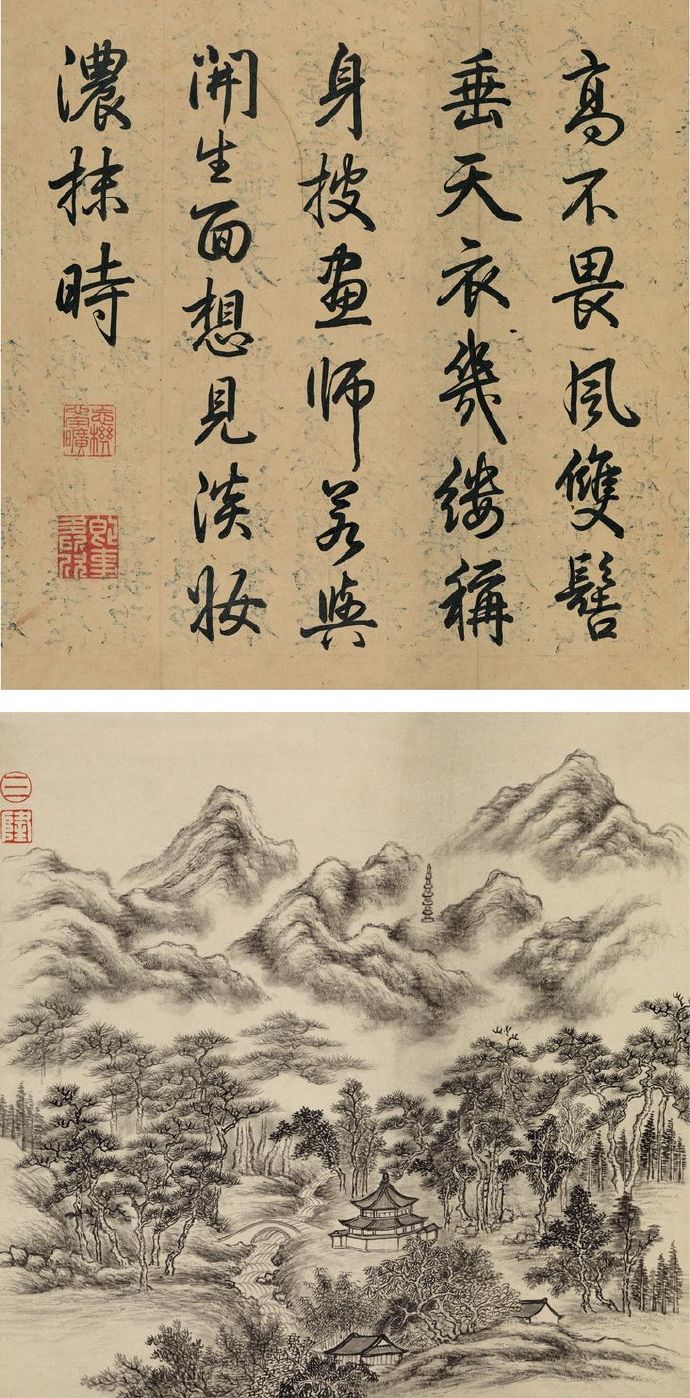 高不畏風雙髻
垂天衣幾縷稱
身披畫師若與
開生面想見淡妝
濃抹時
即事多所欣
☰
隆